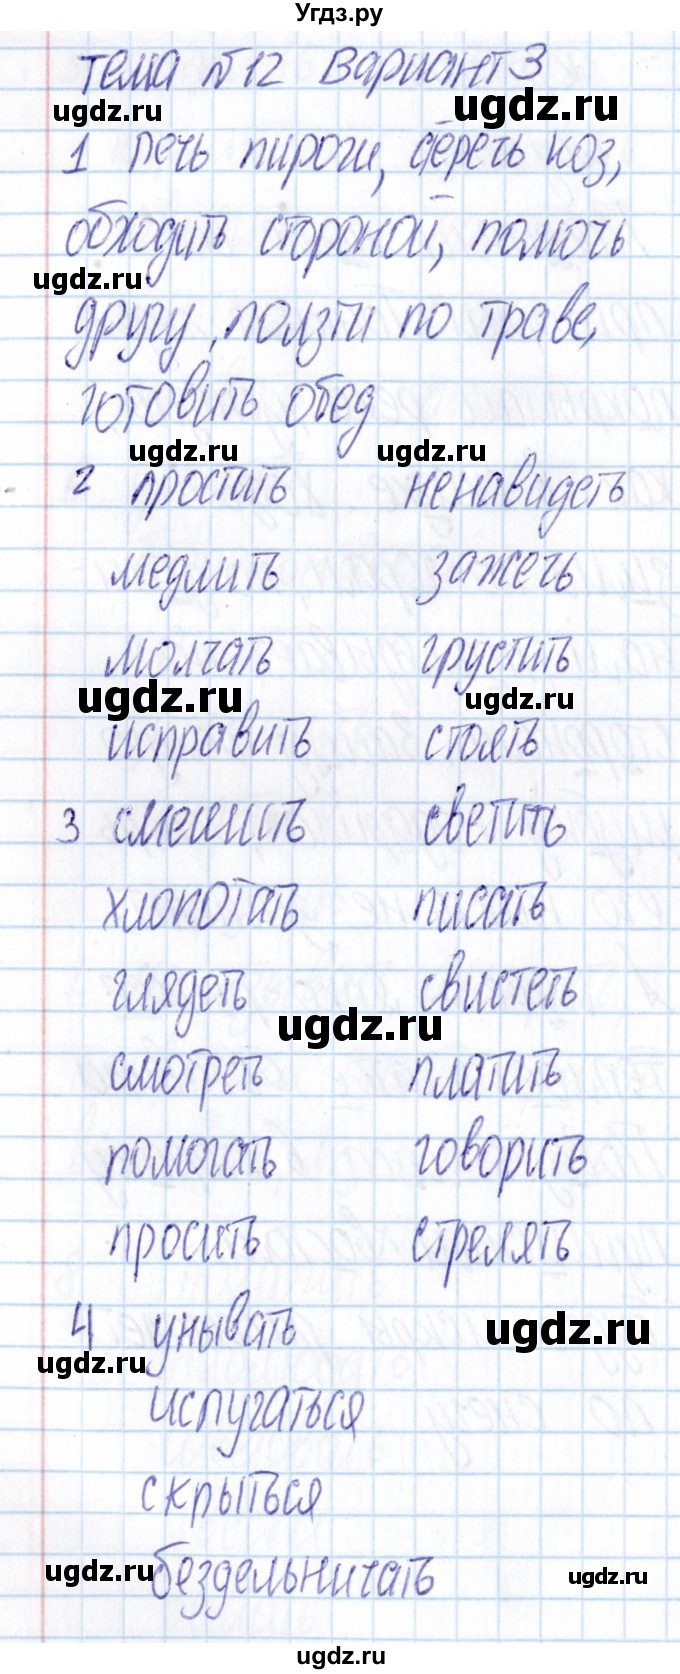 Угдз.ру
Тема №12 Вариант 3
ugdz.ru ugdz.ru
1 печь пироги, стеречь коз,
обходить стороной, помочь
ugdz.ru
другу, ползти по траве,
готовить обед
ugdz.ru ugdz.ru
2 простить ненавидеть
медлить зажечь
молчать грустить
ugdz.ru ugdz.ru
исправить стоять
3 смешить светить
хлопотать писать
глядеть свистеть
ugdz.ru
смотреть платить
помогать говорить
просить стрелять
4 унывать ugdz.ru
ugdz.ru
испугаться
скрыться
ugdz.ru бездельничать ugdz.ru
ugdz.ru